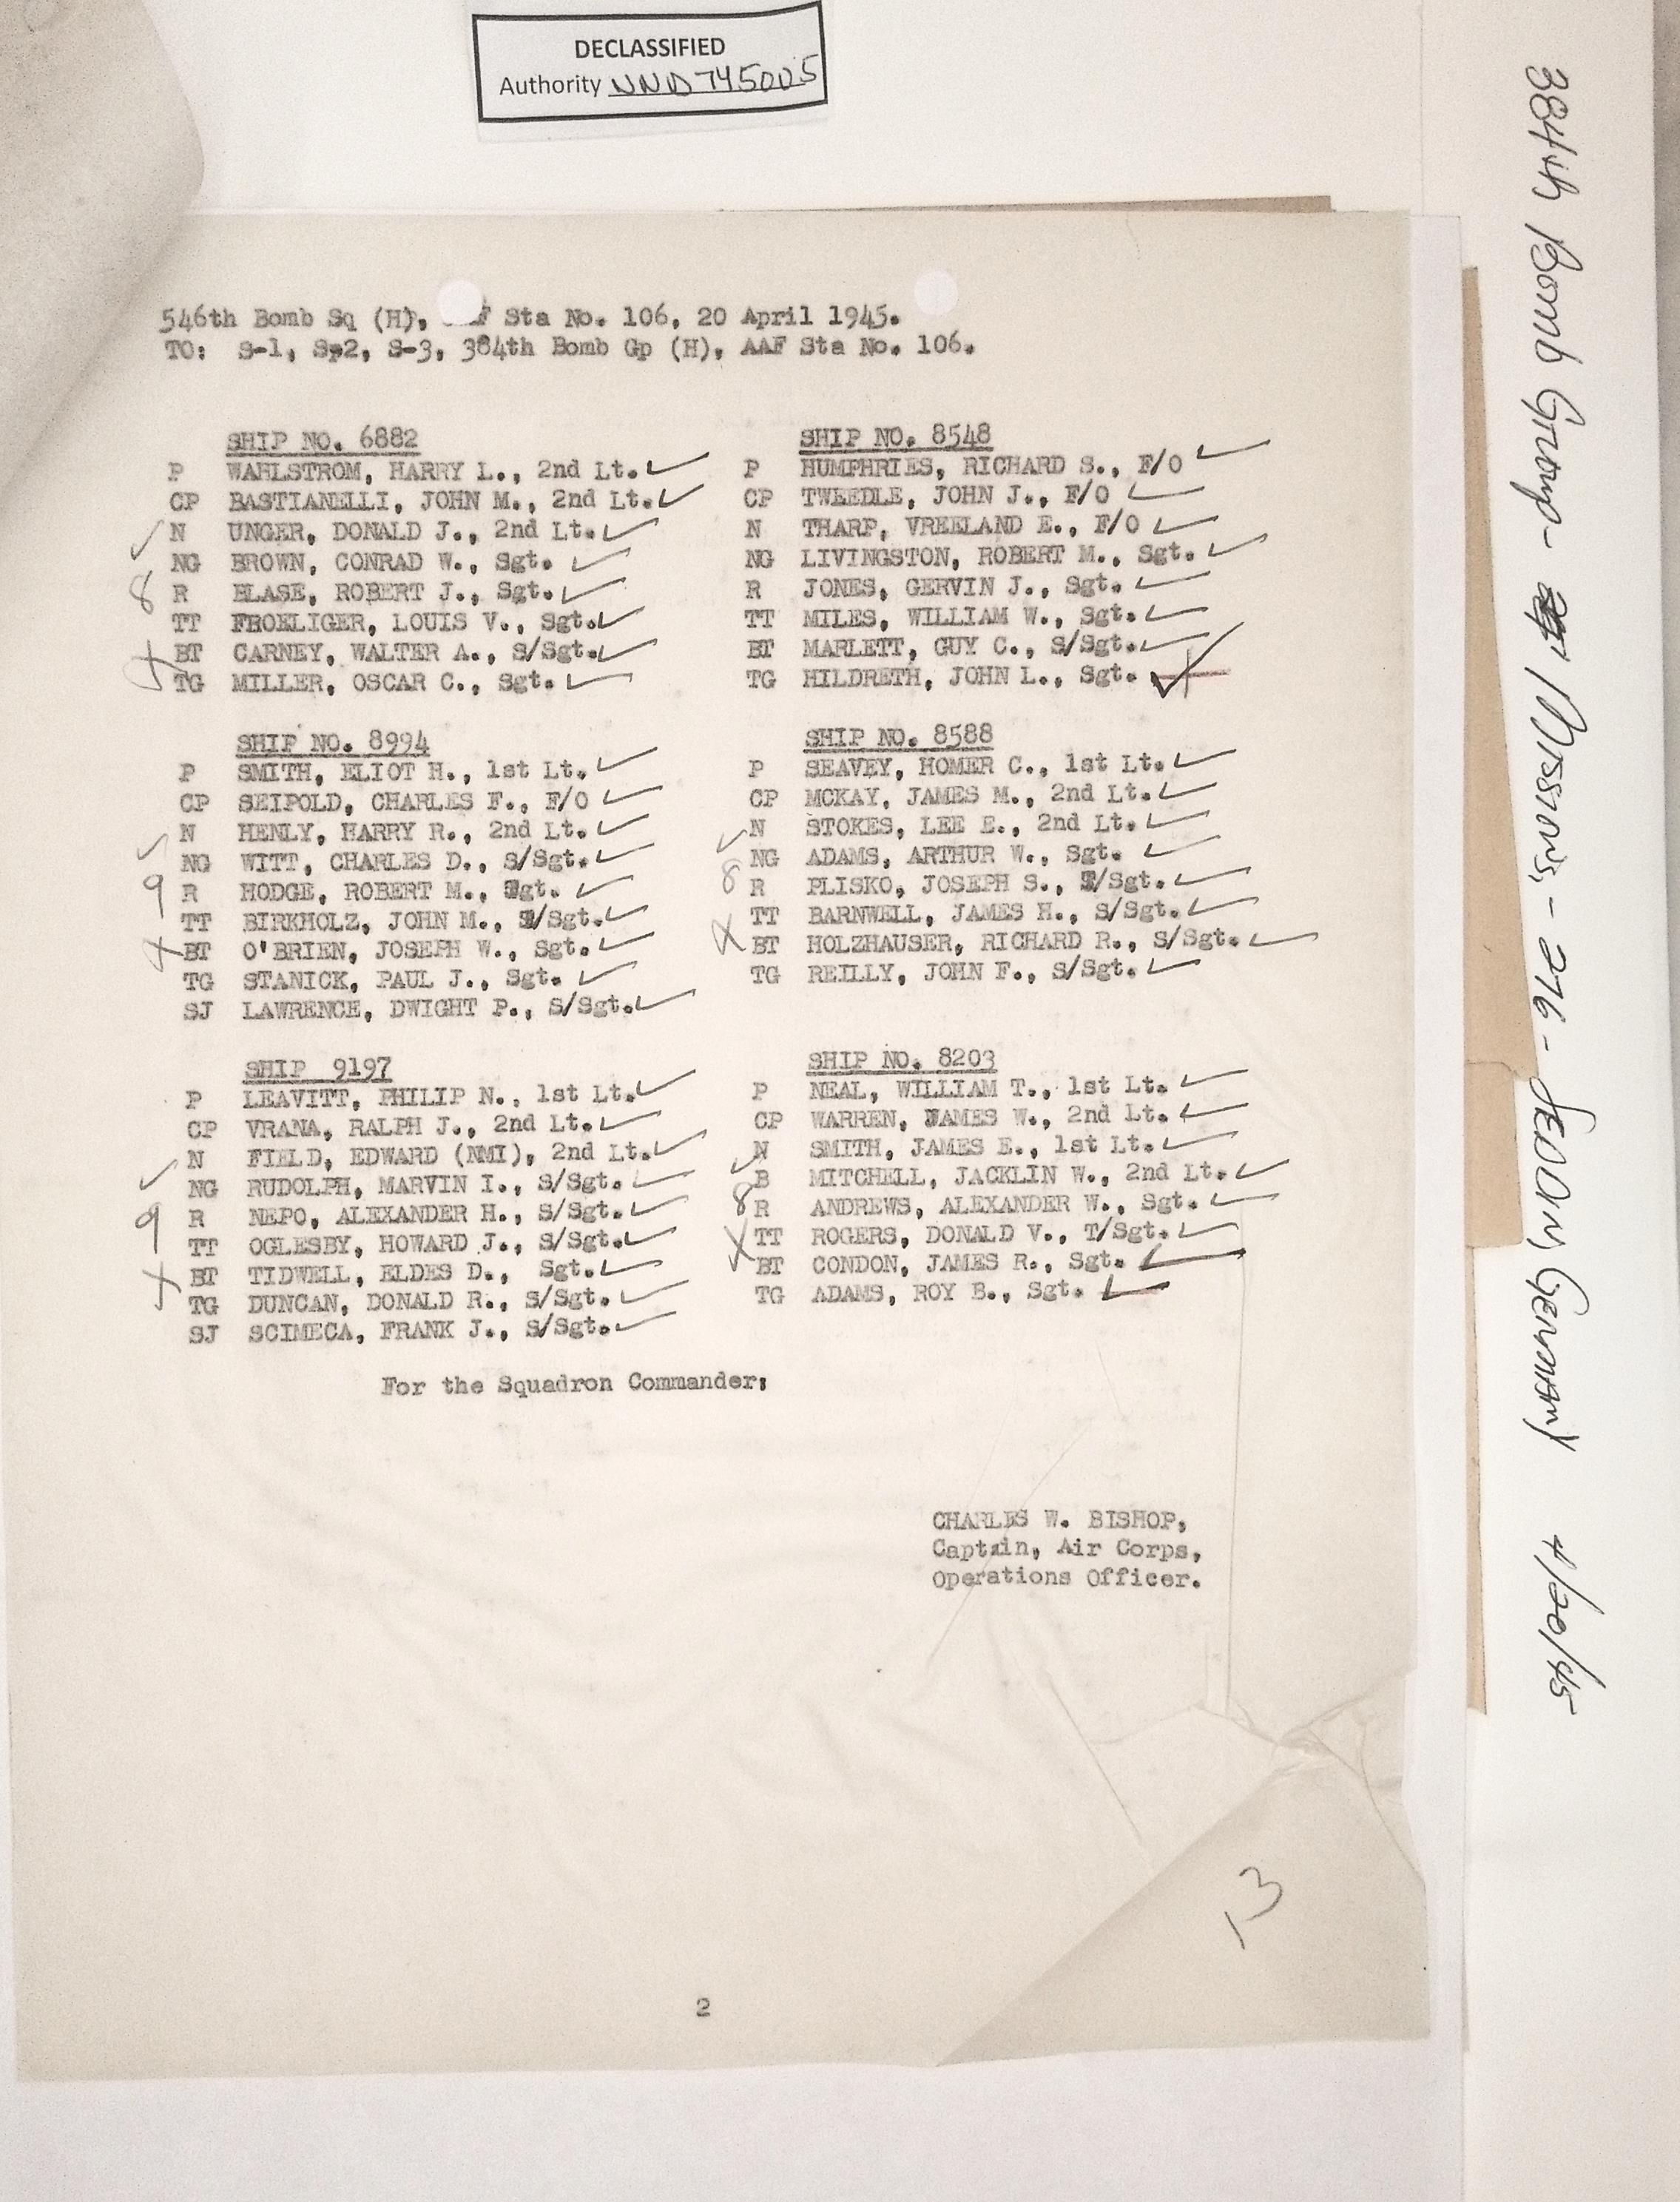 DECLASSIFIED
Authority NND 745005
546th Bomb Sq (H), F Sta No. 106, 20 April 1945.
TO: S-1, S-2, S-3, 384th Bomb Gp (H), AAF Sta No. 106.
SHIP NO. 6882
P WAHLSTROM, HARRY L., 2nd Lt. ✓
CP BASTIANELLI, JOHN M., 2nd Lt. ✓
✓ N UNGER, DONALD J., 2nd Lt. ✓
NG BROWN, CONRAD W., Sgt. ✓
8 R BLASE, ROBERT J., Sgt. ✓
TT FROELIGER, LOUIS V., Sgt. ✓
BT CARNEY, WALTER A., S/Sgt. ✓
TG MILLER, OSCAR C., Sgt. ✓
SHIP NO. 8548
P HUMPHRIES, RICHARD S., F/O ✓
CP TWEEDLE, JOHN J., F/O ✓
N THARP, VREELAND E., F/O ✓
NG LIVINGSTON, ROBERT M., Sgt. ✓
R JONES, GERVIN J., Sgt. ✓
TT MILES, WILLIAM W., Sgt. ✓
BT MARLETT, GUY C., S/Sgt. ✓
TG HILDRETH, JOHN L., Sgt. ✓
SHIP NO. 8994
P SMITH, ELIOT H., 1st Lt. ✓
CP SEIPOLD, CHARLES F., F/O ✓
✓ N HENLY, HARRY R., 2nd Lt. ✓
NG WITT, CHARLES D., S/Sgt. ✓
9 R HODGE, ROBERT M., Sgt. ✓
TT BIRKHOLZ, JOHN M., /Sgt. ✓
BT O'BRIEN, JOSEPH W., Sgt. ✓
TG STANICK, PAUL J., Sgt. ✓
SJ LAWRENCE, DWIGHT P., S/Sgt. ✓
SHIP NO. 8588
P SEAVEY, HOMER C., 1st Lt. ✓
CP MCKAY, JAMES M., 2nd Lt. ✓
✓ N STOKES, LEE E., 2nd Lt. ✓
NG ADAMS, ARTHUR W., Sgt. ✓
8 R PLISKO, JOSEPH S., /Sgt. ✓
TT BARNWELL, JAMES H., S/Sgt. ✓
BT HOLZHAUSER, RICHARD R., S/Sgt. ✓
TG REILLY, JOHN F., S/Sgt. ✓
SHIP 9197
P LEAVITT, PHILIP N., 1st Lt. ✓
CP VRANA, RALPH J., 2nd Lt. ✓
N FIELD, EDWARD (NMI), 2nd Lt. ✓
✓ NG RUDOLPH, MARVIN I., S/Sgt. ✓
9 R NEPO, ALEXANDER H., S/Sgt. ✓
TT OGLESBY, HOWARD J., S/Sgt. ✓
BT TIDWELL, ELDES D., Sgt. ✓
TG DUNCAN, DONALD R., S/Sgt. ✓
SJ SCIMECA, FRANK J., S/Sgt. ✓
SHIP NO. 8203
P NEAL, WILLIAM T., 1st Lt. ✓
CP WARREN, JAMES W., 2nd Lt. ✓
N SMITH, JAMES E., 1st Lt. ✓
✓ B MITCHELL, JACKLIN W., 2nd Lt. ✓
8 R ANDREWS, ALEXANDER W., Sgt. ✓
TT ROGERS, DONALD V., T/Sgt. ✓
BT CONDON, JAMES R., Sgt. ✓
TG ADAMS, ROY B., Sgt. ✓
For the Squadron Commander:
CHARLES W. BISHOP,
Captain, Air Corps,
Operations Officer.
13
2
384th Bomb Group - Missions, - 276 - SEDDIN, Germany 4/20/45